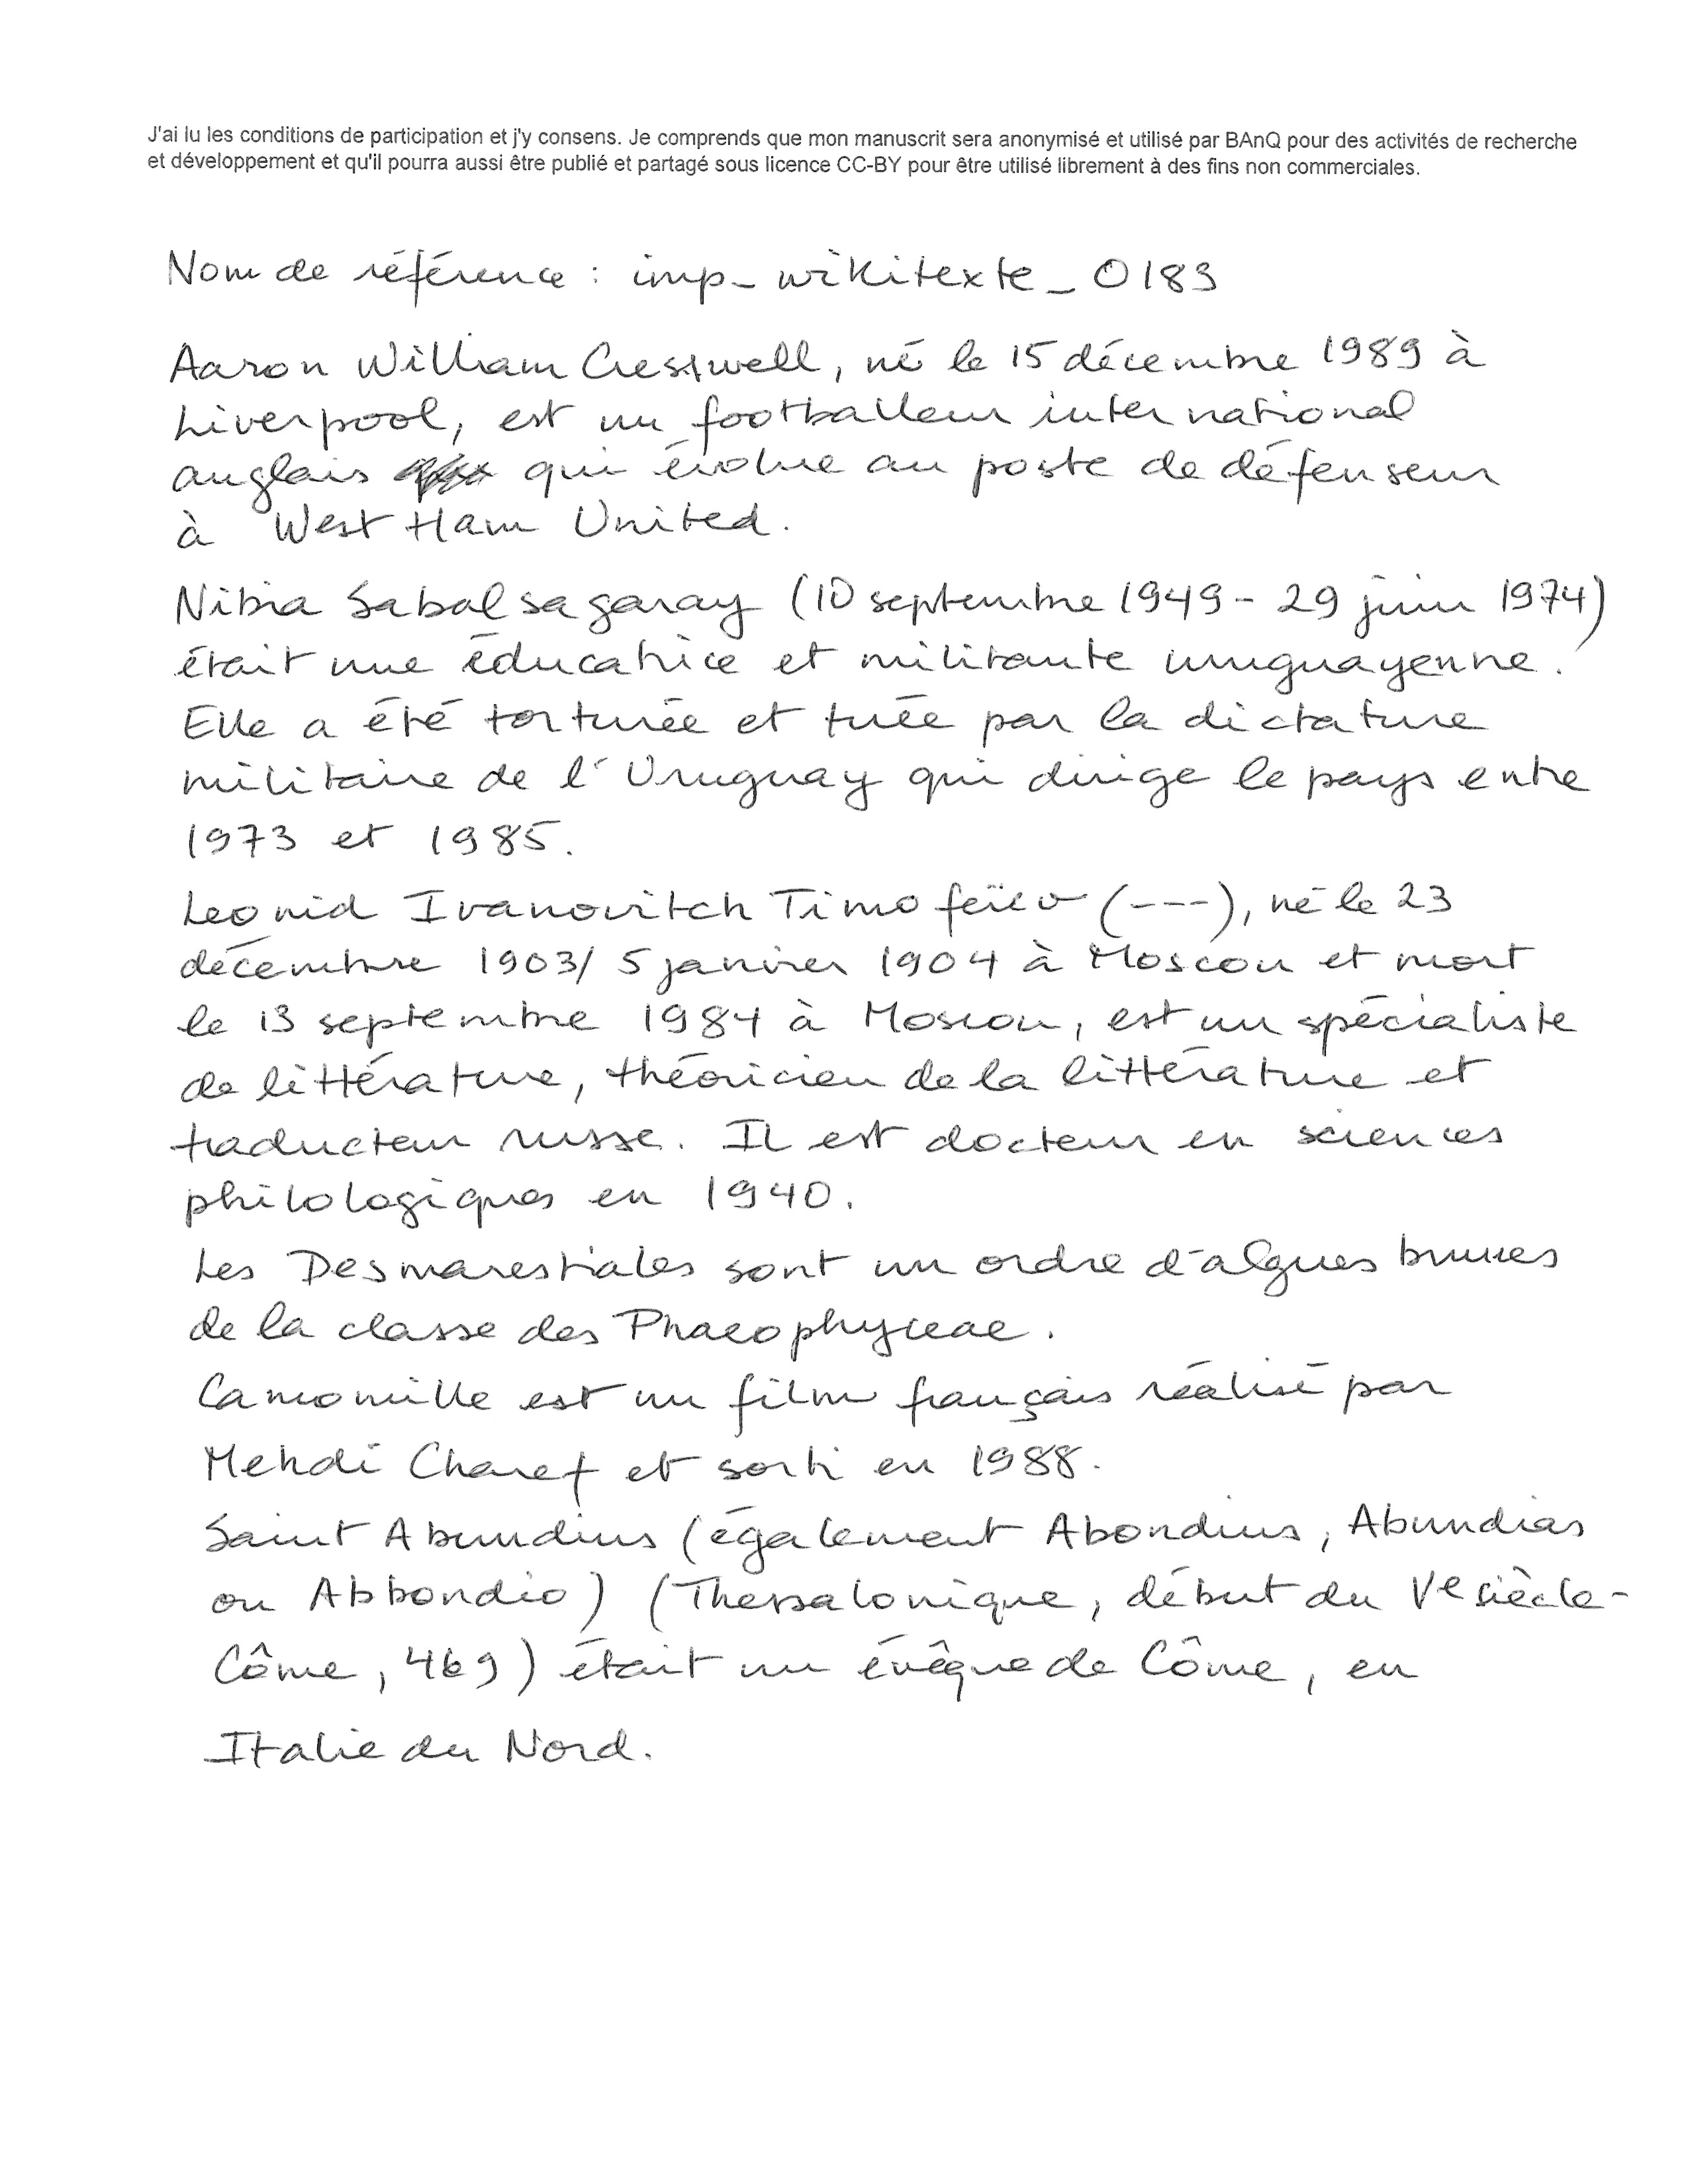 J'ai lu les conditions de participation et j'y consens. Je comprends que mon manuscrit sera anonymisé et utilisé par BAnQ pour des activités de recherche
et développement et qu'il pourra aussi être publié et partagé sous licence CC-BY pour être utilisé librement à des fins non commerciales.
Nom de référence : imp_wikitexte_0183
Aaron William Cresswell, né le 15 décembre 1989 à
Liverpool, est un footballeur international
anglais qui évolue au poste de défenseur
à West Ham United.
Nibia Sabalsagaray (10 septembre 1949 - 29 juin 1974)
était une éducatrice et militante uruguayenne.
Elle a été torturée et tuée par la dictature
militaire de l'Uruguay qui dirige le pays entre
1973 et 1985.
Leonid Ivanovitch Timofeïev (---), né le 23
décembre 1903/ 5 janvier 1904 à Moscou et mort
le 13 septembre 1984 à Moscou, est un spécialiste
de littérature, théoricien de la littérature et
traducteur russe. Il est docteur en sciences
philologiques en 1940.
Les Desmarestiales sont un ordre d'algues brunes
de la classe des Phaeophyceae.
Camomille est un film français réalisé par
Mehdi Charef et sorti en 1988.
Saint Abundius (également Abondius, Abundias
ou Abbondio) (Thessalonique, début du Ve siècle -
Côme, 469) était un évêque de Côme, en
Italie du Nord.